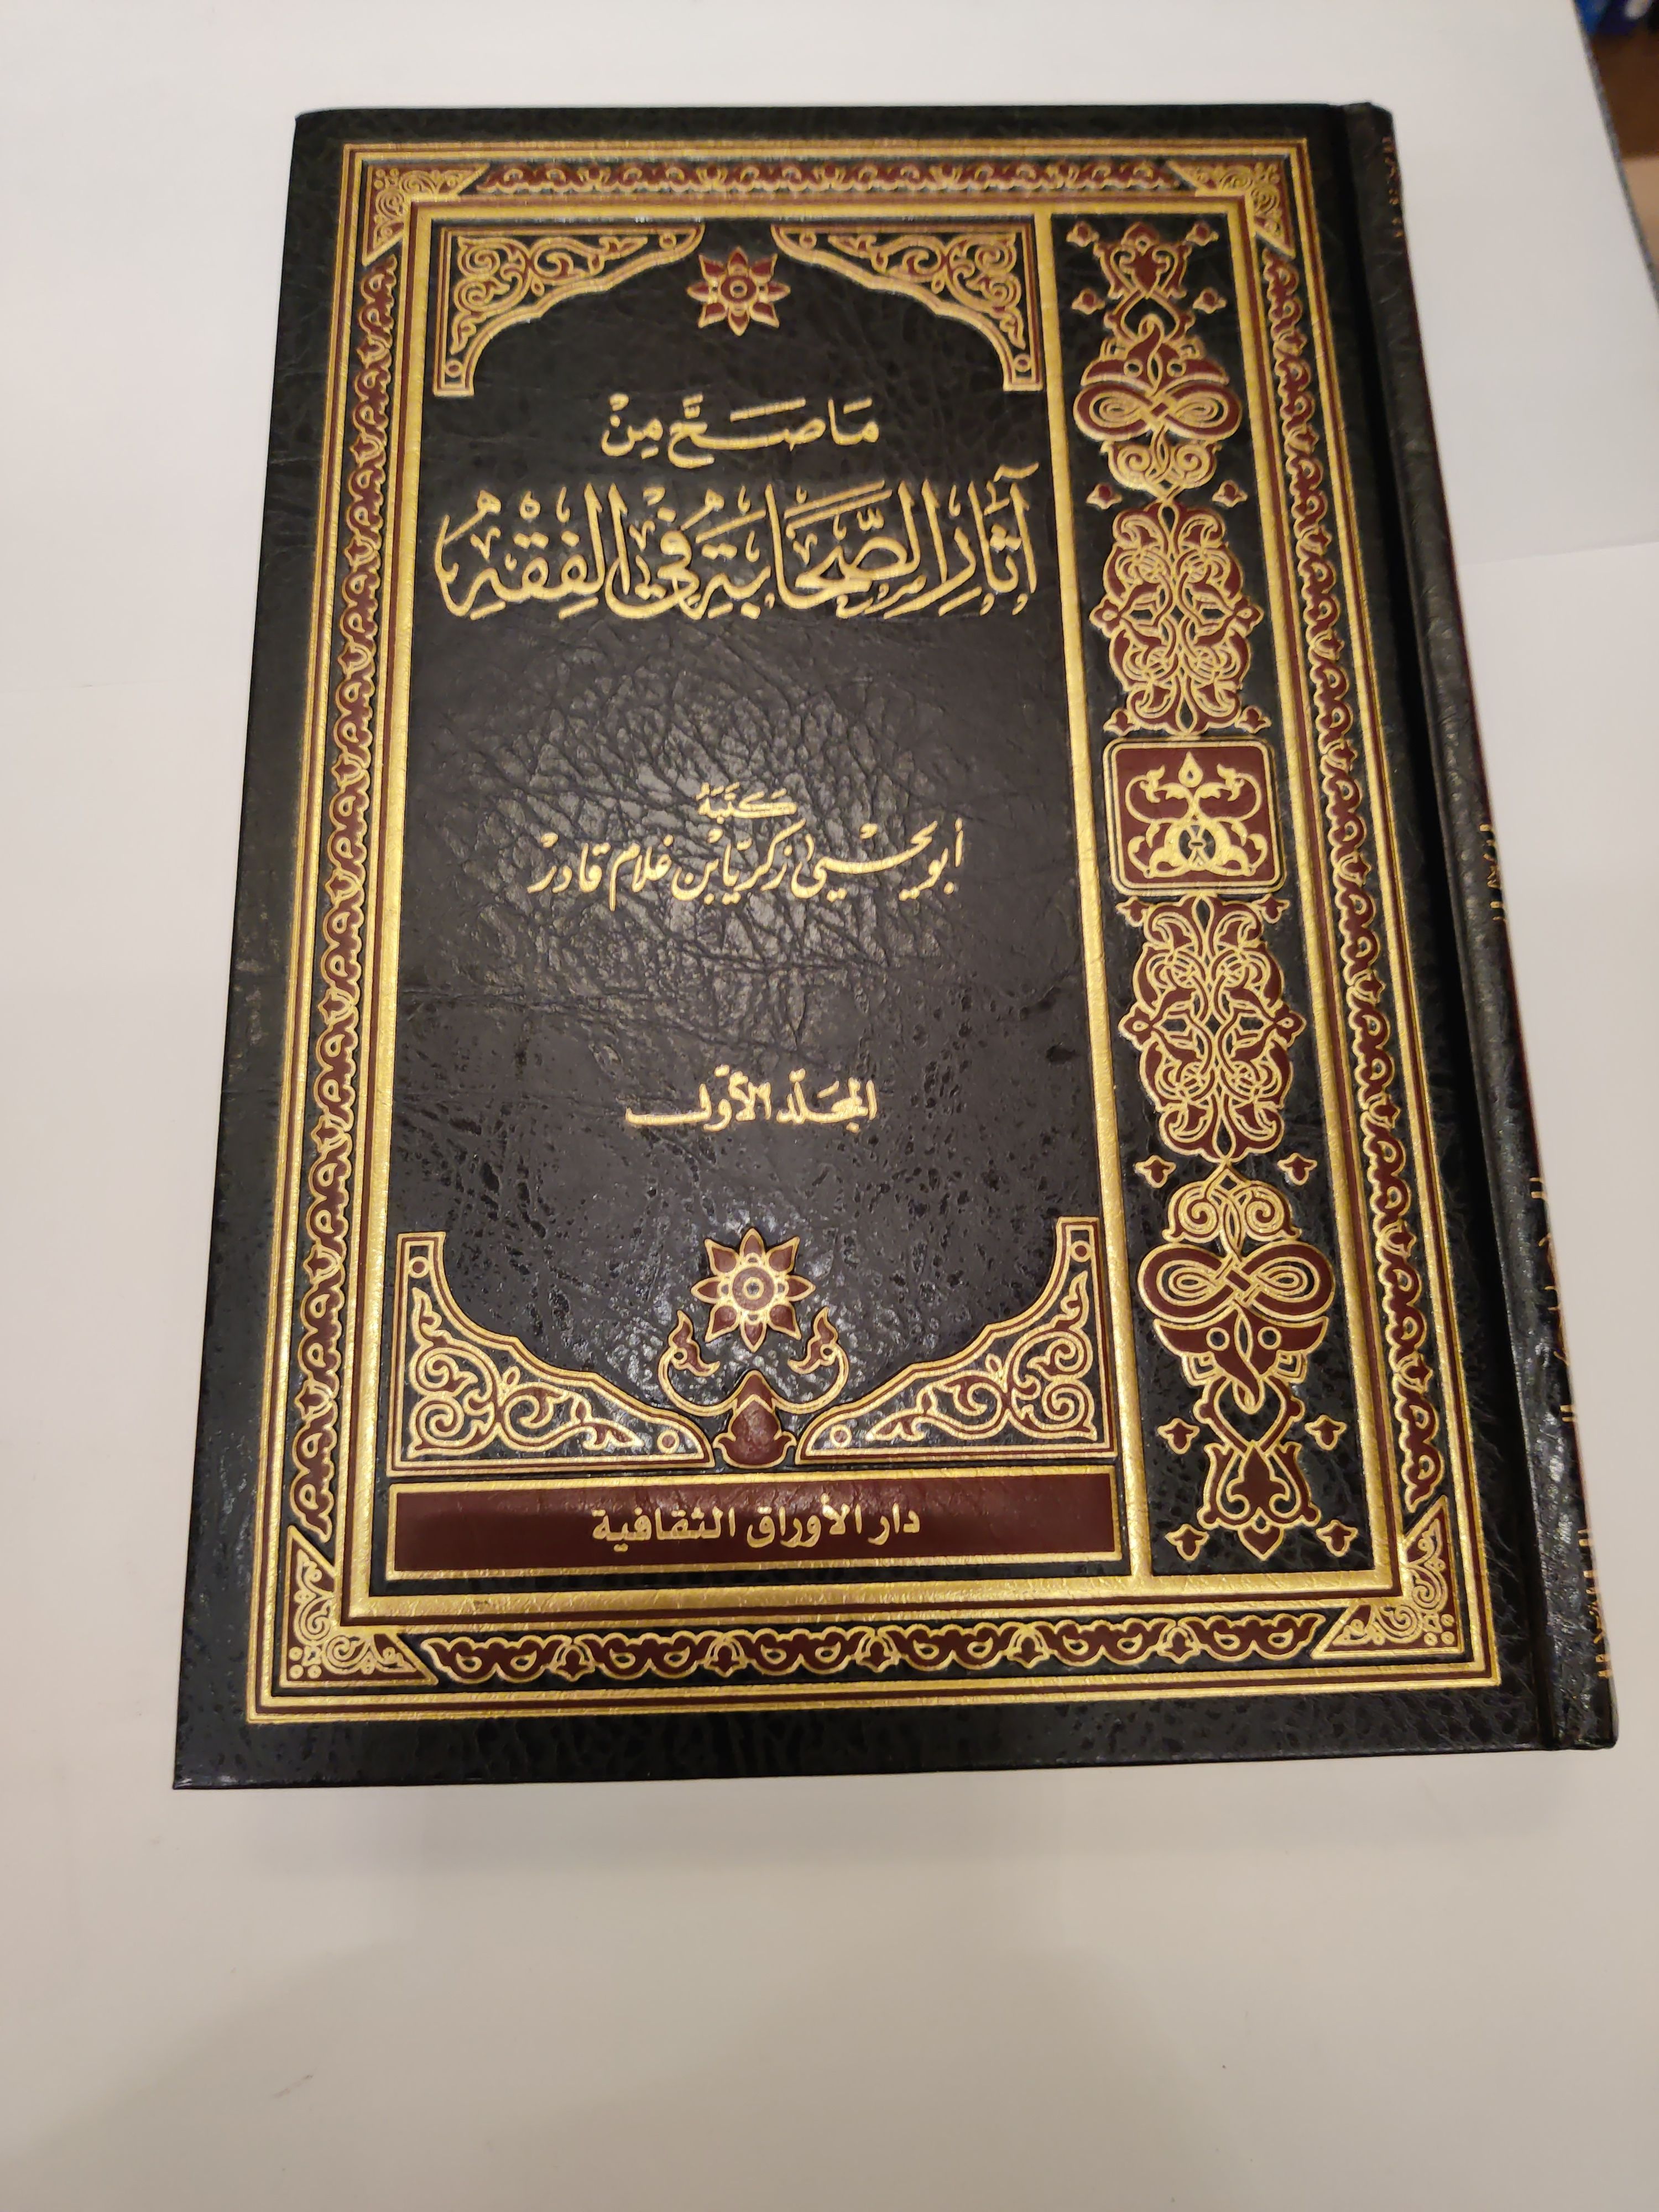 مَا صَحَّ مِنْ
آثَارِ الصَّحَابَةِ فِي الفِقْهِ
كَتَبَهُ
أبو يحيى زكريّا بن غلام قادر
المجَلّد الأوّل
دار الأوراق الثقافية